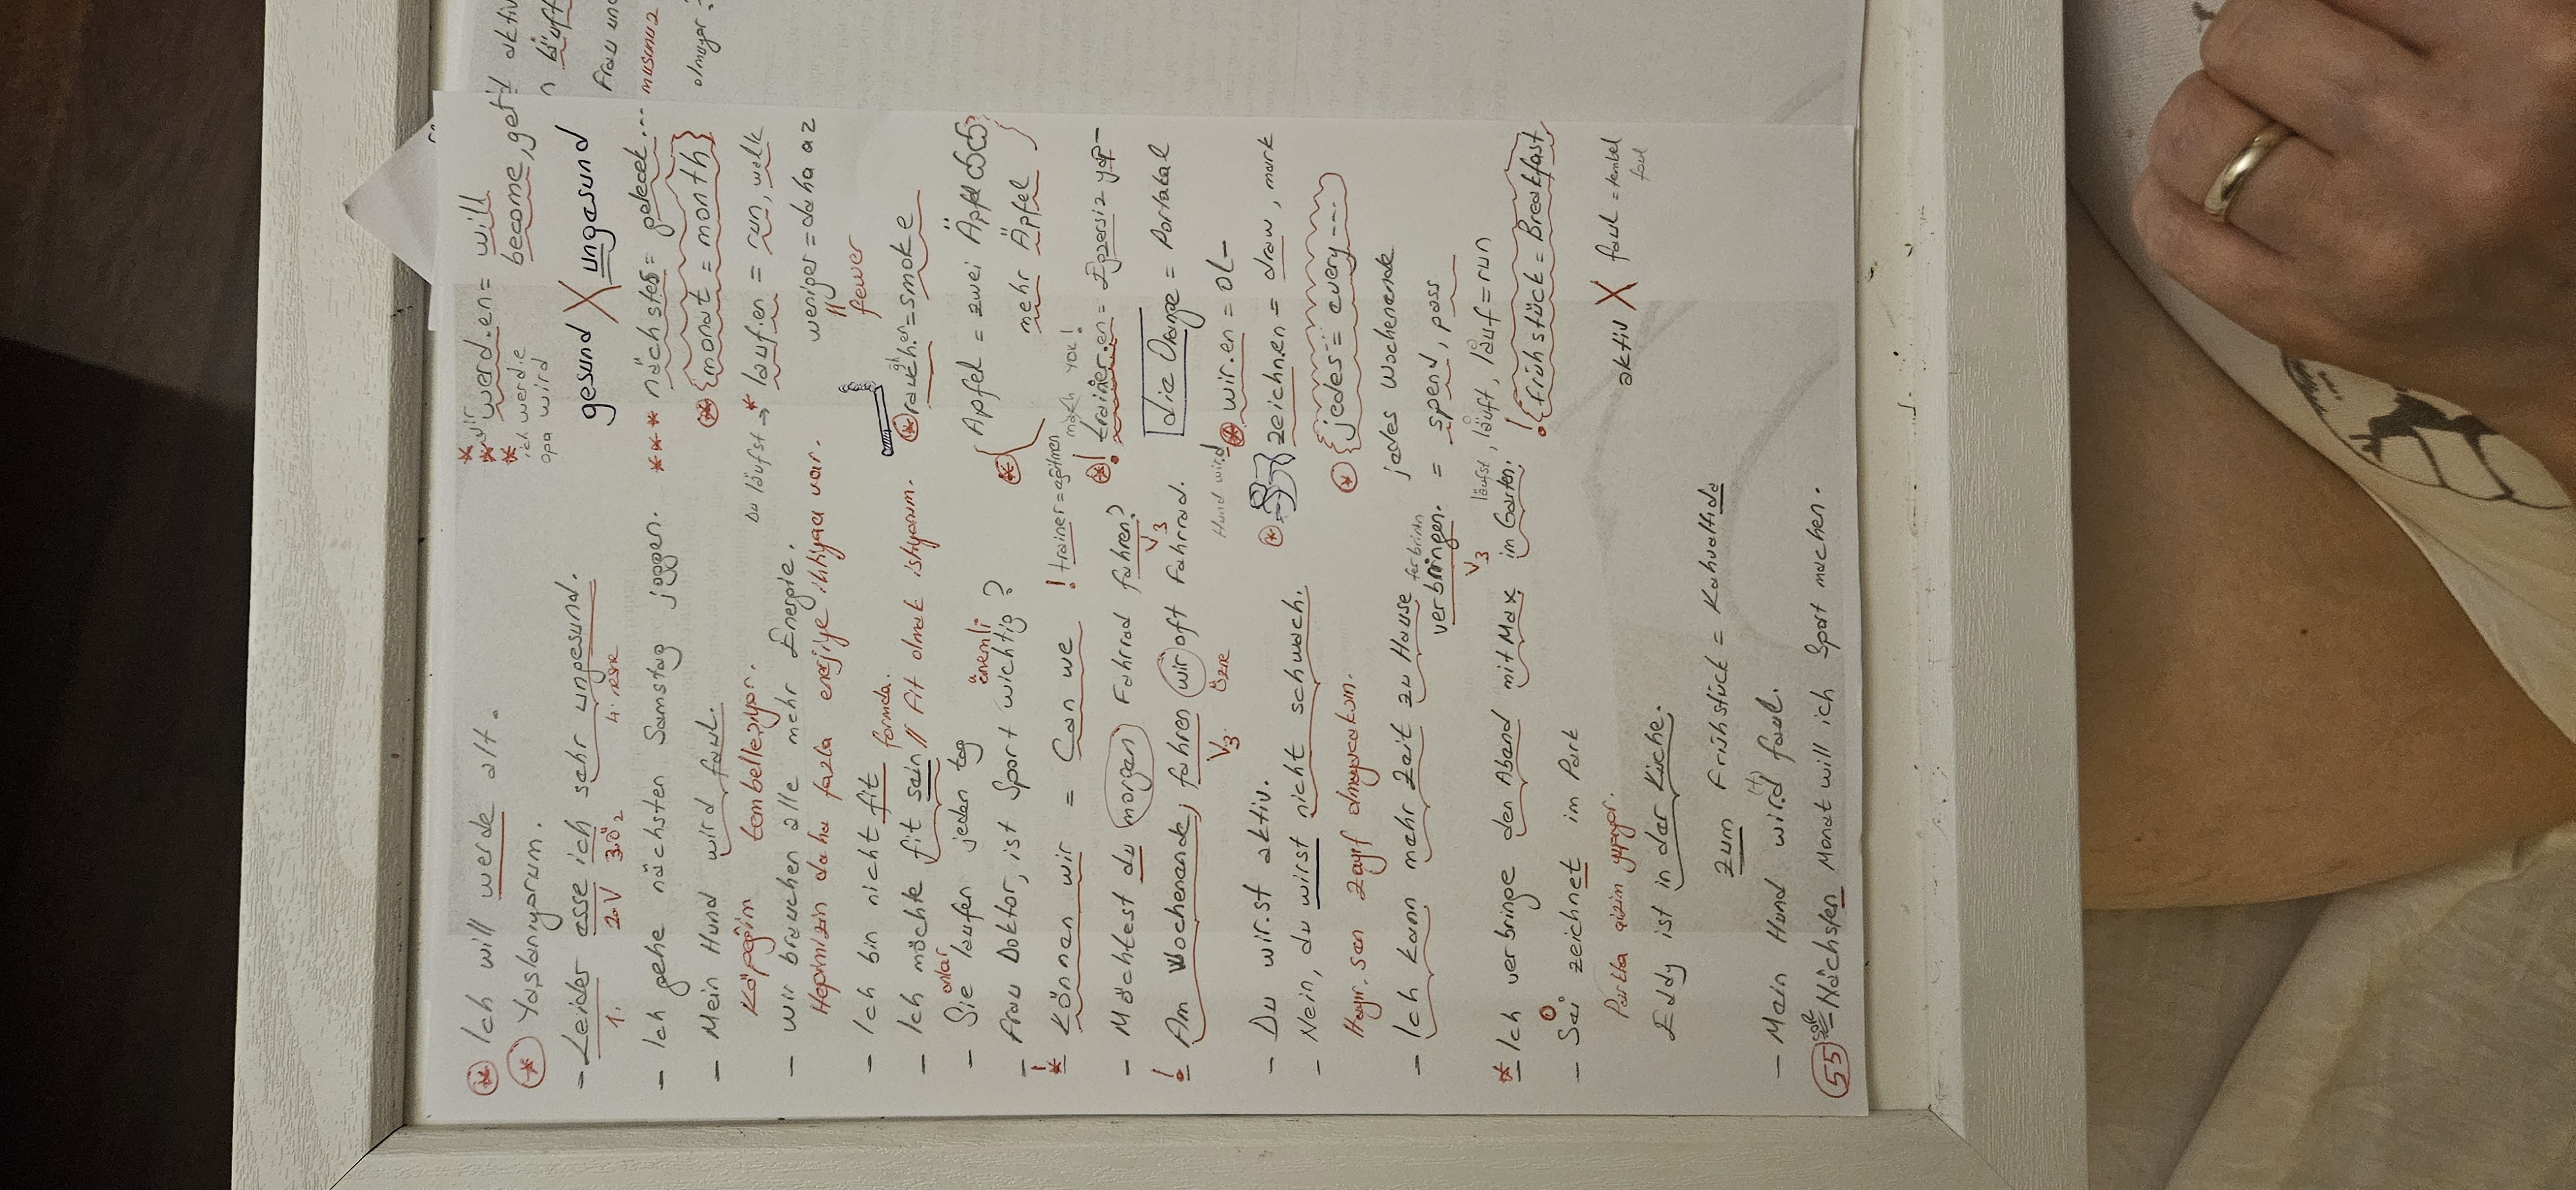 Ich will werde alt.
Yaşlanıyorum.
werd.en = will
wir
become, get!
ich werde
opa wird
- Leider esse ich sehr ungesund.
1. 2.V 3.Ö 4.
gesund X ungesund
- Ich gehe nächsten Samstag joggen.
*** nächstes = gelecek...
{monat = month}
- Mein Hund wird faul.
Köpeğim tembelleşiyor.
Du läufst → * lauf.en = run, walk
- Wir brauchen alle mehr Energie.
Hepimizin daha fazla enerjiye ihtiyacı var.
weniger = daha az
fewer
- Ich bin nicht fit formda.
- Ich möchte fit sein // Fit olmak istiyorum.
rauch.en = smoke
onlar
- Sie laufen jeden tag
Apfel = zwei Äpfel
mehr Äpfel
- Frau Doktor, ist Sport wichtig?
önemli
! * Können wir = Can we
! trainer = eğitmen
! trainier.en = Egzersiz yap-
- Möchtest du morgen Fahrrad fahren?
V3
die Orange = Portakal
! Am Wochenende, fahren wir oft Fahrrad.
V3 özne
Hund wird
wir.en = ol-
- Du wir.st aktiv.
zeichnen = draw, mark
- Nein, du wirst nicht schwach.
Hayır, sen zayıf olmayacaksın.
{jedes = every ---}
jedes Wochenende
- Ich kann mehr Zeit zu Hause verbringen. = spend, pass
V3
läufst, läuft, läuf = run
* Ich verbringe den Abend mit Max im Garten.
! {Frühstück = Breakfast}
- Sei zeichnet im Park
Parkta çizim yapıyor.
aktiv X faul = tembel
faul
Eddy ist in der Küche.
zum Frühstück = Kahvaltıda
- Mein Hund wird faul.
55 Nächsten Monat will ich Sport machen.
aktiv
läuft
Frau und
mısınız
olmuyor